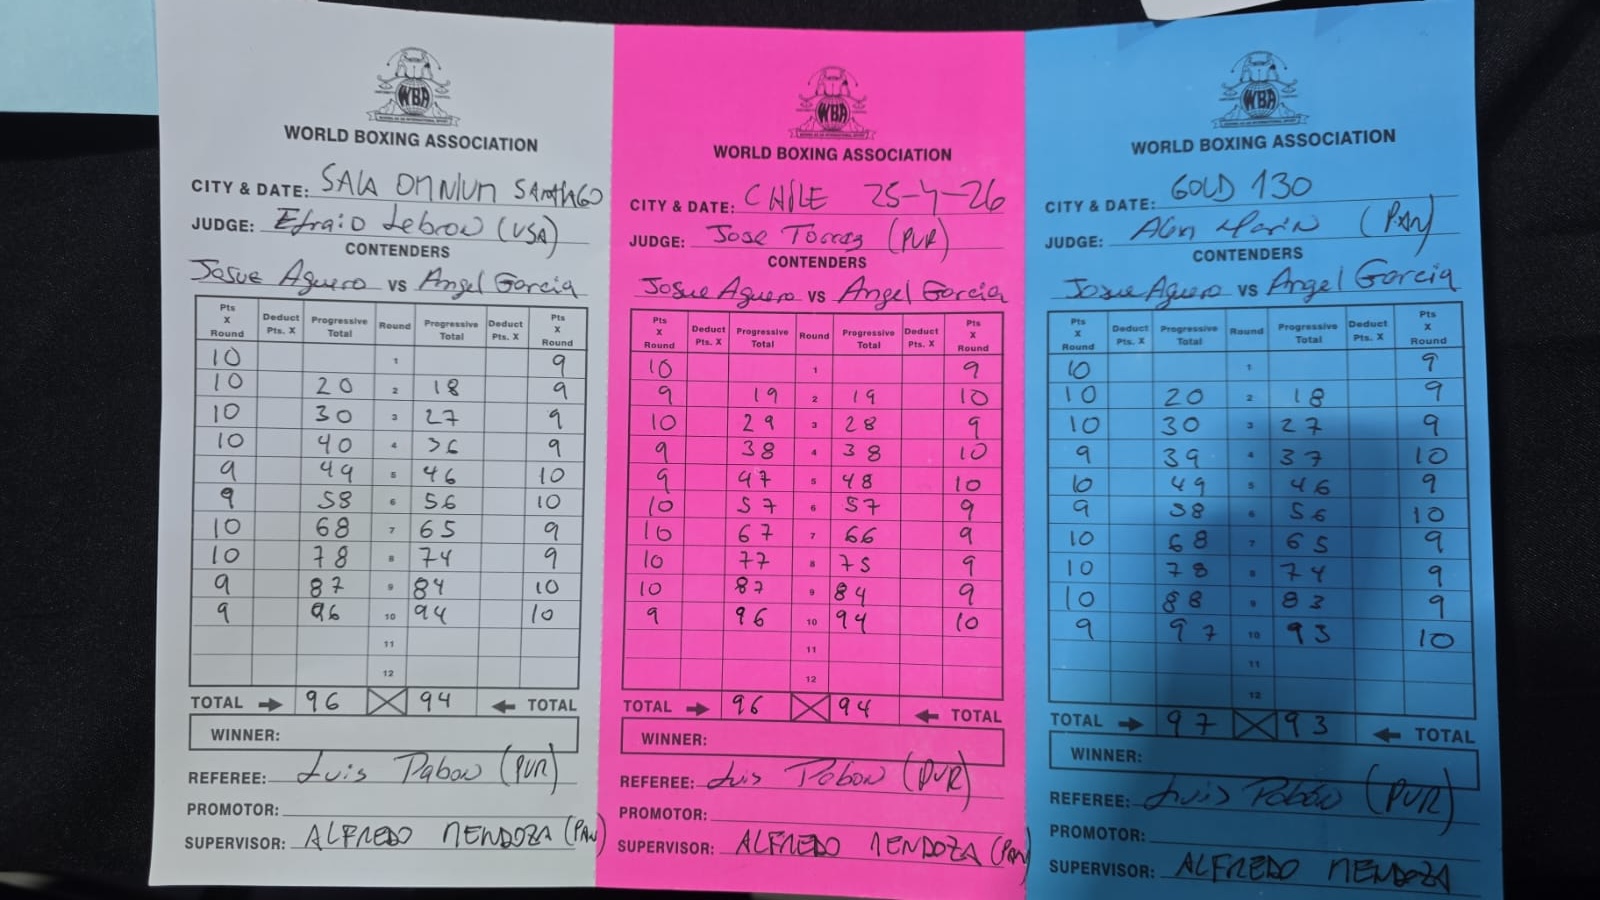 WBA
WORLD BOXING ASSOCIATION
CITY & DATE: SALA OMNIUM SANTIAGO
JUDGE: Efraio Lebron (USA)
CONTENDERS
Josue Aguero VS Angel Garcia
Pts X Round Deduct Pts. X Progressive Total Round Progressive Total Deduct Pts. X Pts X Round
10 1 9
10 20 2 18 9
10 30 3 27 9
10 40 4 36 9
9 49 5 46 10
9 58 6 56 10
10 68 7 65 9
10 78 8 74 9
9 87 9 84 10
9 96 10 94 10
11
12
TOTAL 96 94 TOTAL
WINNER:
REFEREE: Luis Pabon (PUR)
PROMOTOR:
SUPERVISOR: ALFREDO MENDOZA (PAN)
WBA
WORLD BOXING ASSOCIATION
CITY & DATE: CHILE 25-4-26
JUDGE: Jose Torres (PUR)
CONTENDERS
Josue Aguero VS Angel Garcia
Pts X Round Deduct Pts. X Progressive Total Round Progressive Total Deduct Pts. X Pts X Round
10 1 9
9 19 2 19 10
10 29 3 28 9
9 38 4 38 10
9 47 5 48 10
10 57 6 57 9
10 67 7 66 9
10 77 8 75 9
10 87 9 84 9
9 96 10 94 10
11
12
TOTAL 96 94 TOTAL
WINNER:
REFEREE: Luis Pabon (PUR)
PROMOTOR:
SUPERVISOR: ALFREDO MENDOZA (PAN)
WBA
WORLD BOXING ASSOCIATION
CITY & DATE: GOLD 130
JUDGE: Marin (PAN)
CONTENDERS
Josue Aguero VS Angel Garcia
Pts X Round Deduct Pts. X Progressive Total Round Progressive Total Deduct Pts. X Pts X Round
10 1 9
10 20 2 18 9
10 30 3 27 9
9 39 4 37 10
10 49 5 46 9
9 58 6 56 10
10 68 7 65 9
10 78 8 74 9
10 88 9 83 9
9 97 10 93 10
11
12
TOTAL 97 93 TOTAL
WINNER:
REFEREE: Luis Pabon (PUR)
PROMOTOR:
SUPERVISOR: ALFREDO MENDOZA